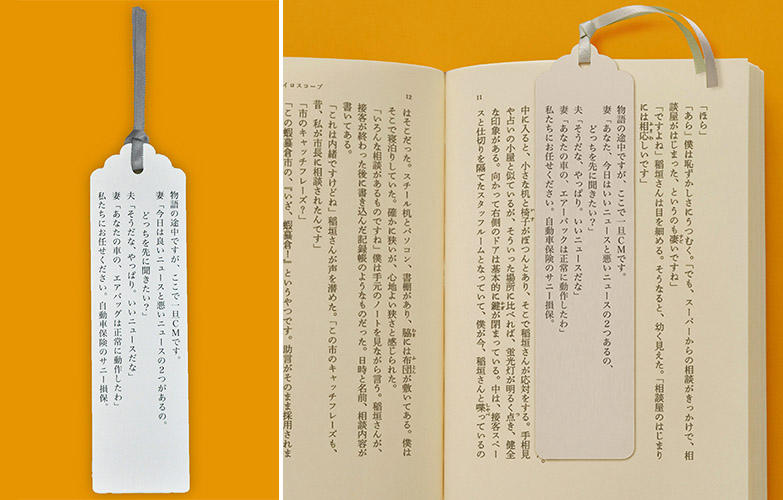 物語の途中ですが、ここで一旦CMです。
妻「今日は良いニュースと悪いニュースの2つがあるの。
どっちを先に聞きたい?」
夫「そうだな、やっぱり。いいニュースだな」
妻「あなたの車の、エアバッグは正常に動作したわ」
私たちにお任せください。自動車保険のサニー損保。
11
「ほら」
「あら」僕は恥ずかしさにうつむく。「でも、スーパーからの相談がきっかけで、相
談屋がはじまった、というのも凄いですね」
「ですよね」稲垣さんは目を細める。そうなると、幼く見えた。「相談屋のはじまり
には相応しいです」
物語の途中ですが、ここで一旦CMです。
妻「あなた、今日はいいニュースと悪いニュースの2つあるの、
どっちを先に聞きたい?」
夫「そうだな、やっぱりいいニュースだな」
妻「あなたの車の、エアーバックは正常に動作したわ」
私たちにお任せください。自動車保険のサニー損保。
中に入ると、小さな机と椅子がぽつんとあり、そこで稲垣さんが応対をする。手相見
や占いの小屋と似ているが、そういった場所に比べれば、蛍光灯が明るく点き、健全
な印象がある。向かって右側のドアは基本的に鍵が閉まっている。中は、接客スペー
スと仕切りを隔てたスタッフルームとなっていて、僕が今、稲垣さんと喋っているの
イロスコープ
12
はそこだった。スチール机とパソコン、書棚があり、脇には布団が敷いてある。僕は
そこで寝泊りしていた。確かに狭いが、心地よい狭さと感じられた。
「いろんな相談があるものですね」僕は手元のノートを見ながら言う。稲垣さんが、
接客が終わった後に書き込んだ記録帳のようなものだった。日時と名前、相談内容が
書いてある。
「これは内緒ですけどね」稲垣さんが声を潜めた。「この市のキャッチフレーズも、
昔、私が市長に相談されたんです」
「市のキャッチフレーズ?」
「この蝦蟇倉市の、『いざ、蝦蟇倉!』というやつです。助言がそのまま採用されま